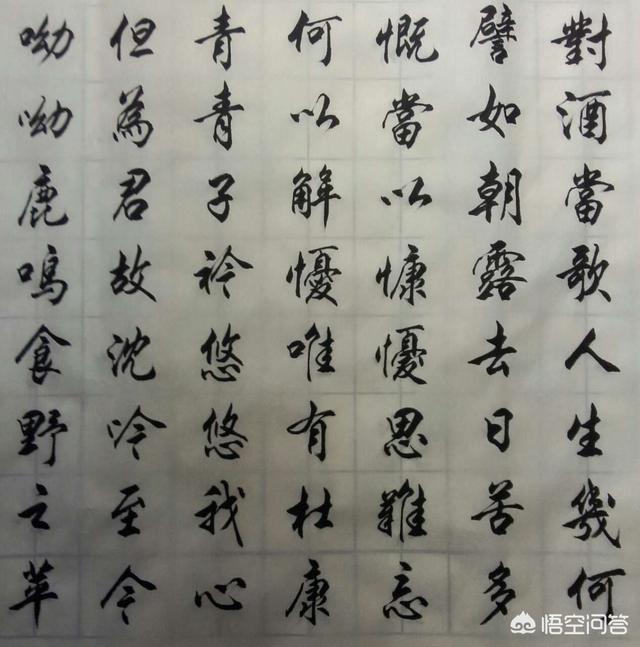 對酒當歌人生幾何
譬如朝露去日苦多
慨當以慷懮思難忘
何以解懮唯有杜康
青青子衿悠悠我心
但為君故沈吟至今
呦呦鹿鳴食野之苹
悟空问答